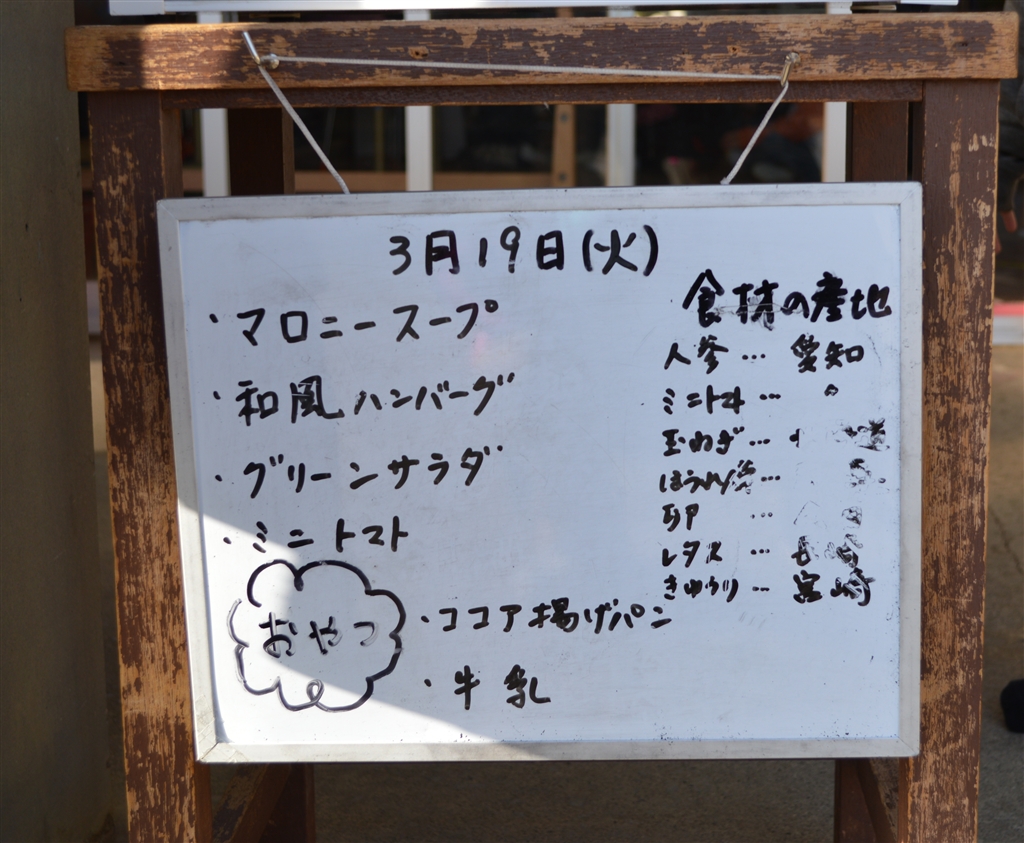 3月19日(火)
・マロニースープ
・和風ハンバーグ
・グリーンサラダ
・ミニトマト
おやつ
・ココア揚げパン
・牛乳
食材の産地
人参… 愛知
ミニトマト… 〃
玉ねぎ…
ほうれん草…
卵 …
レタス …
きゅうり… 宮崎